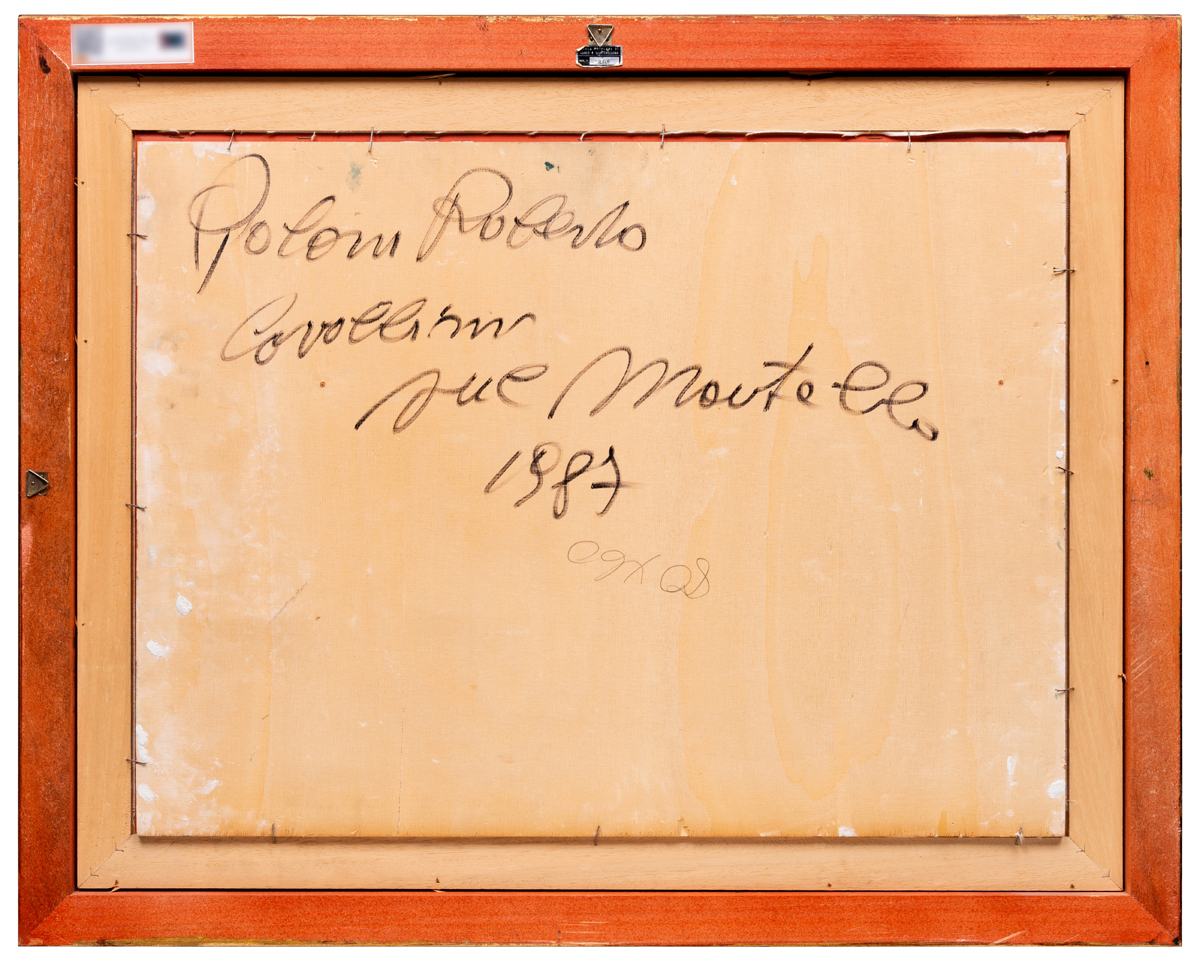 Poloni Roberto
Cavallini
sul Montello
1987